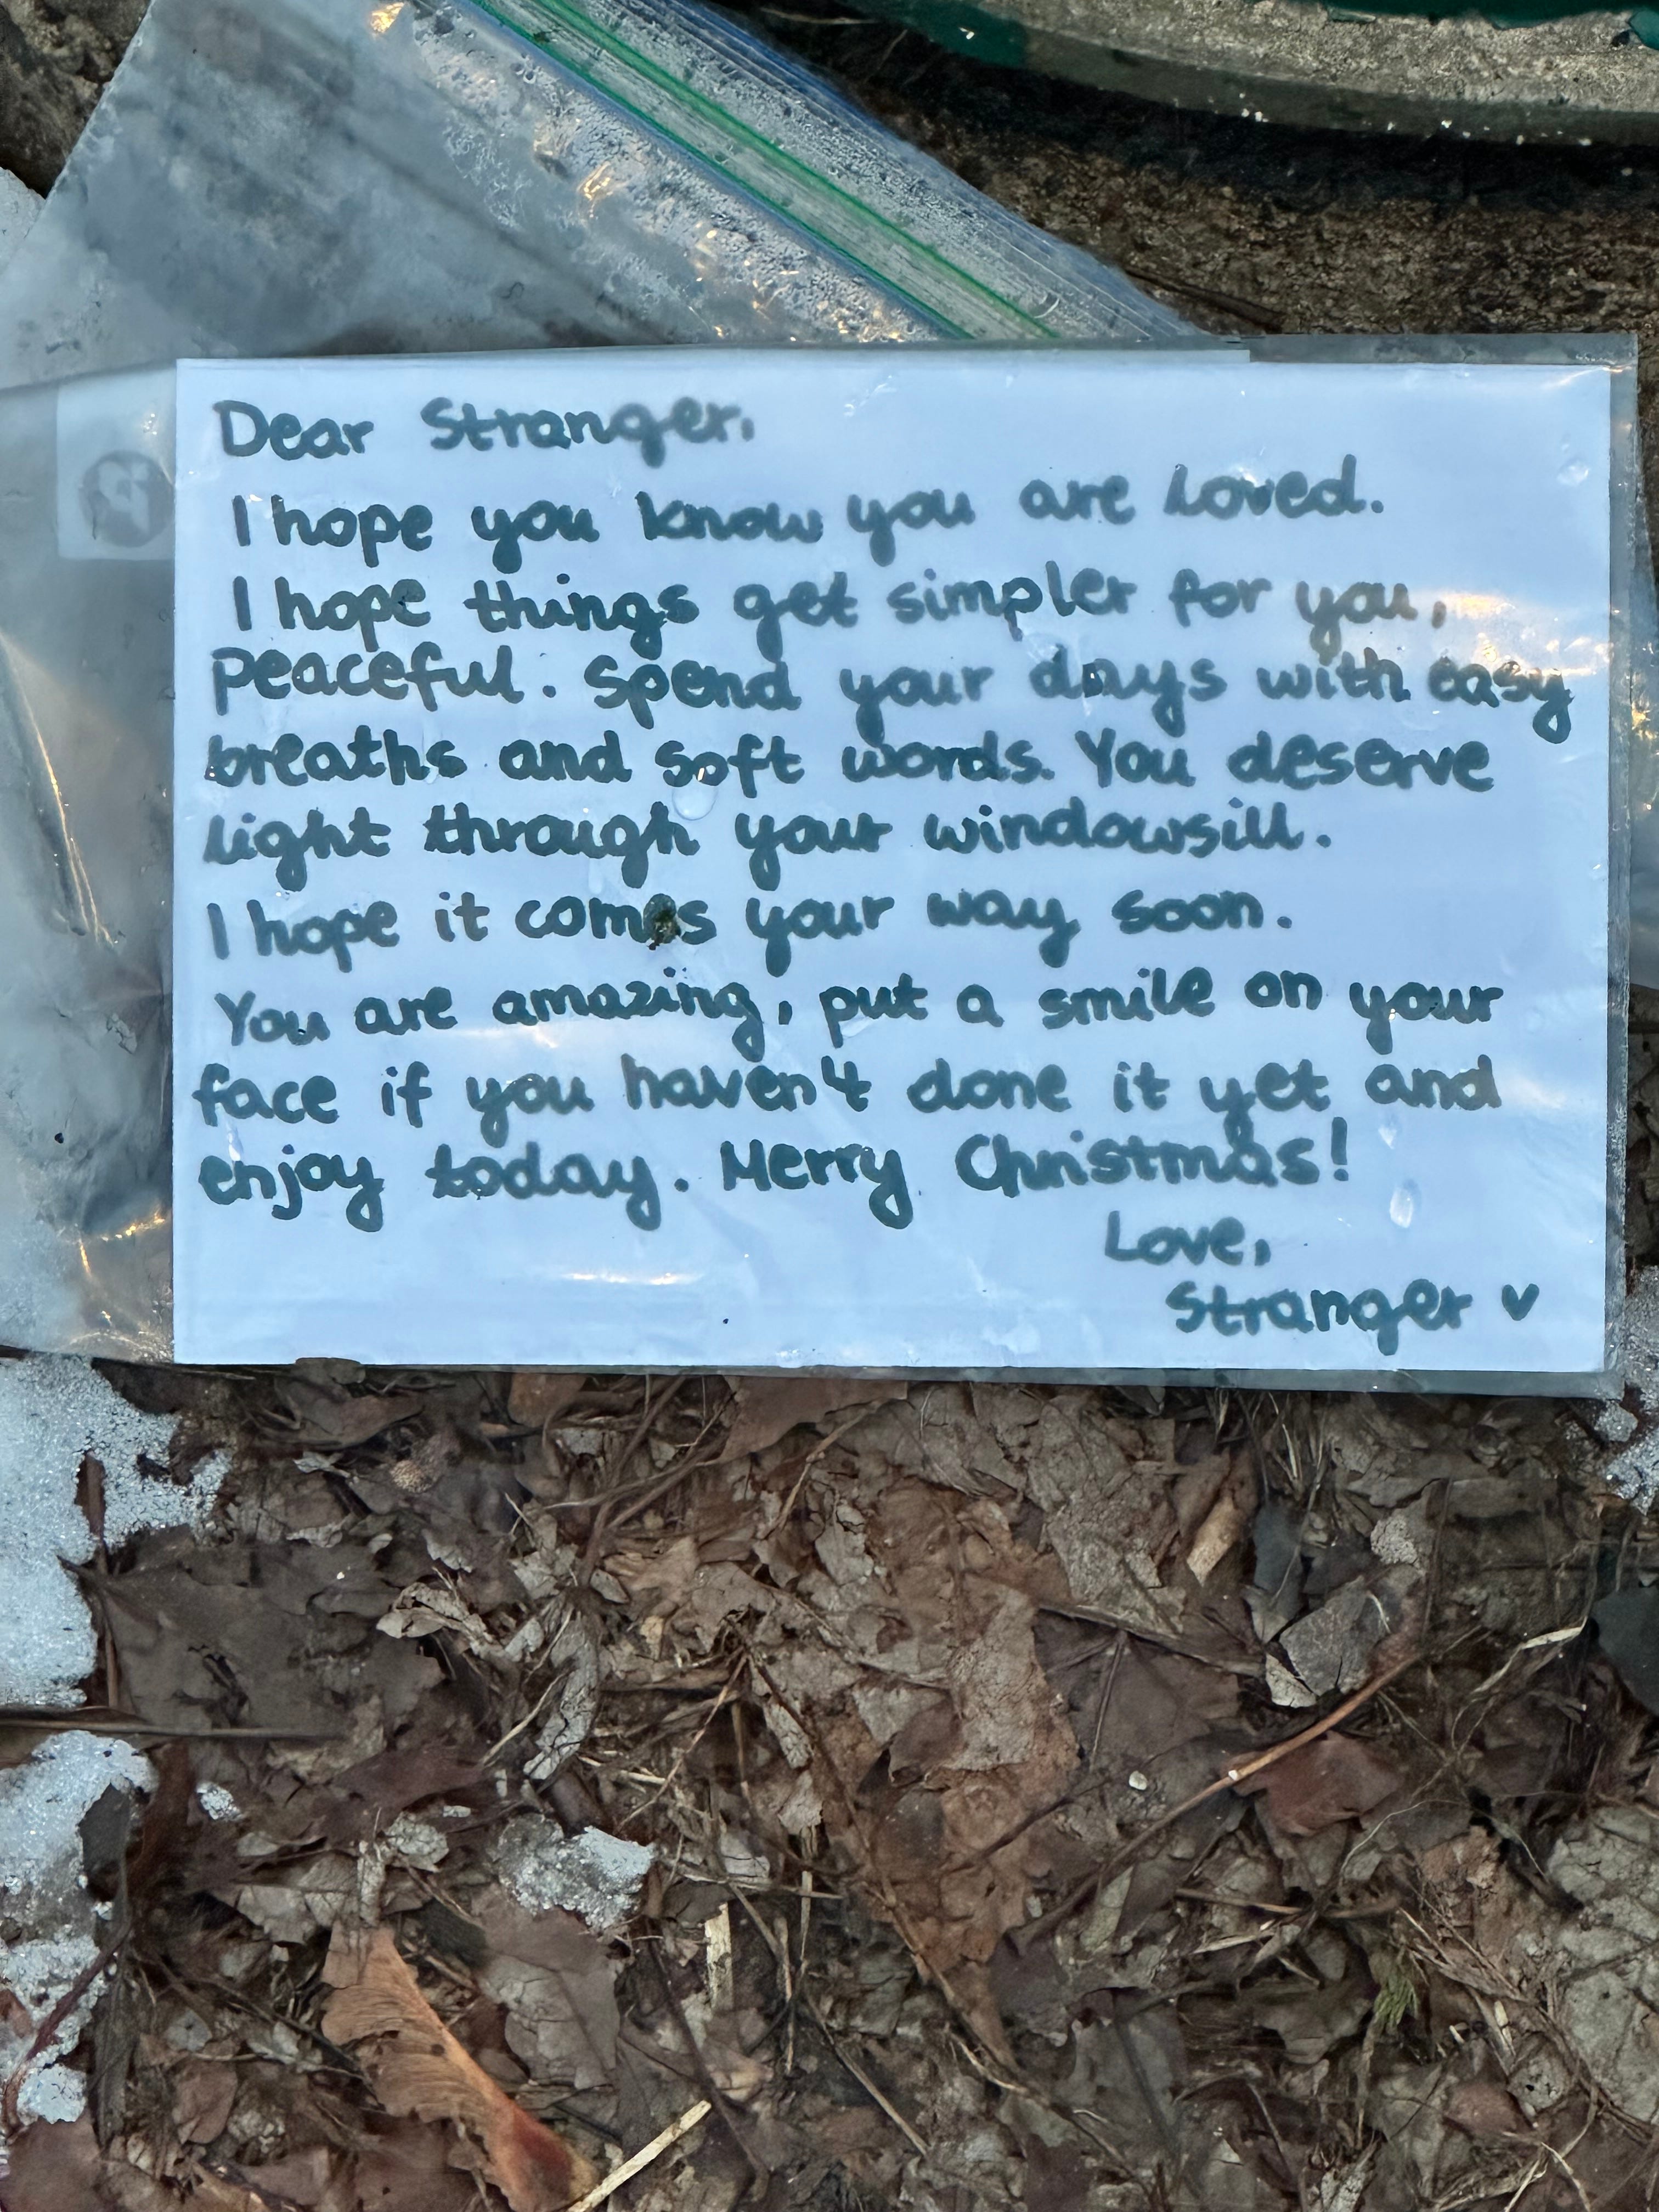 Dear Stranger,
I hope you know you are Loved.
I hope things get simpler for you,
Peaceful. Spend your days with easy
breaths and soft words. You deserve
light through your windowsill.
I hope it comes your way soon.
You are amazing, put a smile on your
face if you haven't done it yet and
enjoy today. Merry Christmas!
Love,
Stranger ♥